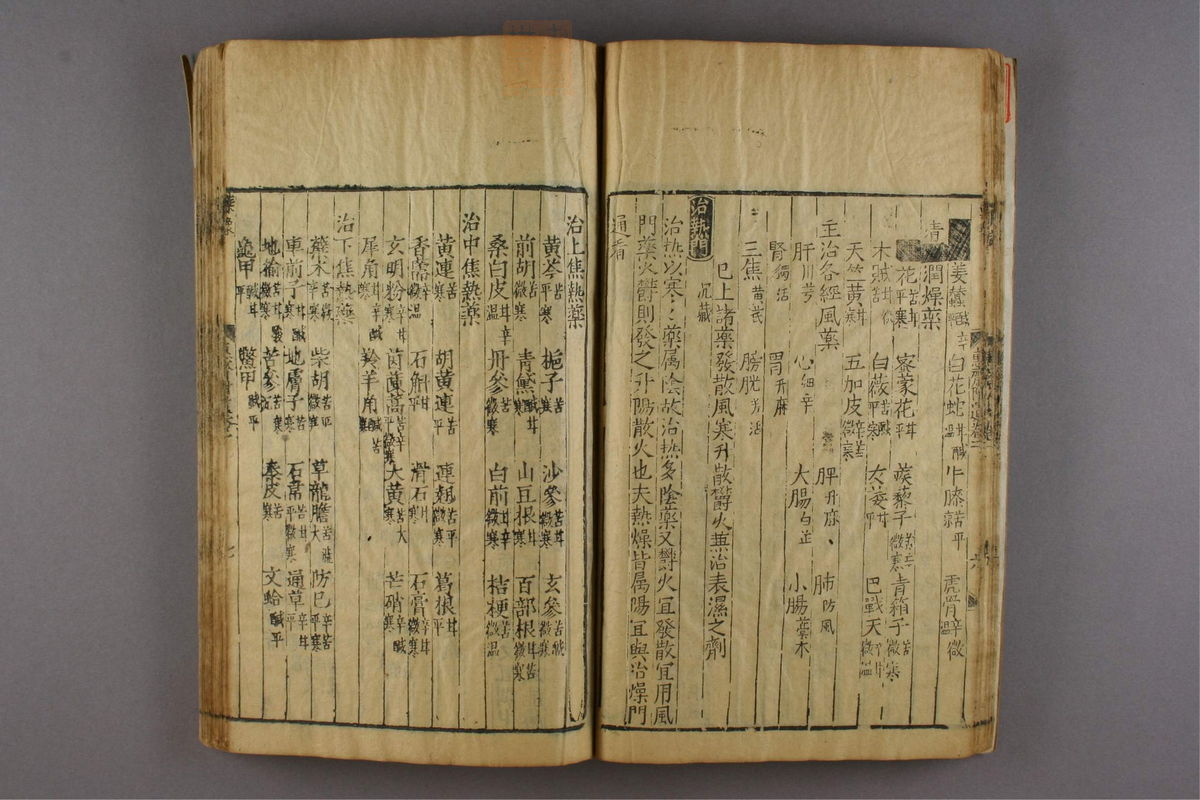 萎蕤醎平 白花蛇甘醎溫 牛膝苦平 虎骨辛微溫
清 潤燥藥
花苦甘平寒 密蒙花甘 蒺藜子苦辛微寒 青箱子苦微寒
木賊甘苦 白薇苦醎平寒 女萎甘平 巴戟天辛甘微溫
天竺黃甘寒 五加皮辛苦微寒
主治各經風藥
肝川芎 心細辛 脾升麻 肺防風
腎獨活 胃升麻 大腸白芷 小腸藁本
三焦黃芪 膀胱羌活
已上諸藥發散風寒升散鬱火兼治表濕之劑
治熱門 沉藏
治熱以寒：藥属陰故治熱多陰藥又鬱火冝發散冝用風
門藥火鬱則發之升陽散火也夫熱燥皆属陽冝與治燥門
通看
治上焦熱藥
黃芩苦平寒 梔子苦寒 沙參苦甘微寒 玄參苦醎微寒
前胡苦微寒 青黛醎甘寒 山豆根甘寒 百部根甘苦微寒
桑白皮甘辛溫 丹參苦微寒 白前甘辛微寒 桔梗苦微溫
治中焦熱藥
黃連苦寒 胡黃連苦平 連翹苦平 葛根甘平
香薷辛微溫 石斛甘平 滑石甘寒 石膏辛甘微寒
玄明粉辛甘寒 茵蔯蒿苦辛平微寒 大黃苦大寒 芒硝辛醎寒
犀角苦辛醎寒 羚羊角醎苦寒
治下焦熱藥
藥末辛苦微寒 柴胡苦平微寒 草龍膽苦澁大寒 防已辛苦平寒
車前子甘醎寒 地膚子苦寒 石韋苦甘平微寒 通草辛甘平
地榆苦甘酸微寒 苦參苦寒 秦皮苦寒 文蛤醎平
龜甲醎甘平 鱉甲醎平